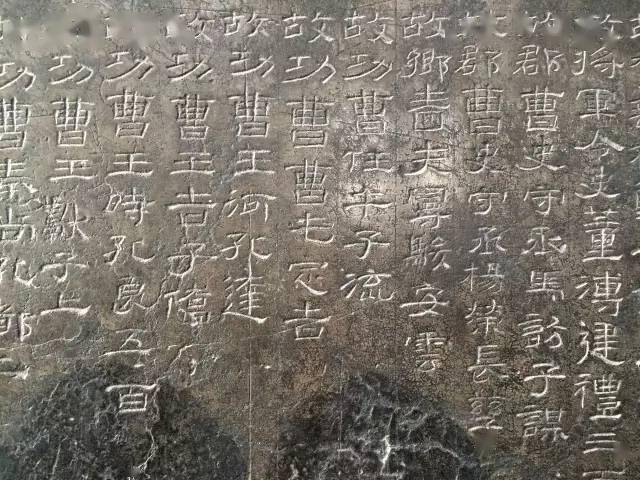 故將軍令史董溥建禮三
故郡曹史守丞馬訪子謀
故郡曹史守丞楊榮長孳
故鄉嗇夫曼駿安雲
故功曹任午子流
故功曹曹屯定吉
故功曹王河孔達
故功曹王吉子僑
故功曹王時孔良五百
故功曹王獻子上
功曹秦尚孔都